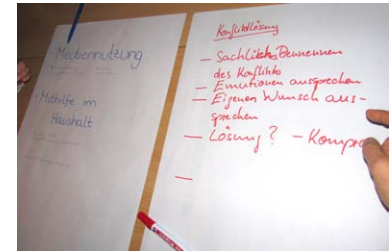 - Mediennutzung
- Mithilfe im
Haushalt
Konfliktlösung
- Sachliches Benennen
des Konflikts
- Emotionen aussprechen
- Eigenen Wunsch aus-
sprechen
- Lösung? - Kompro
-